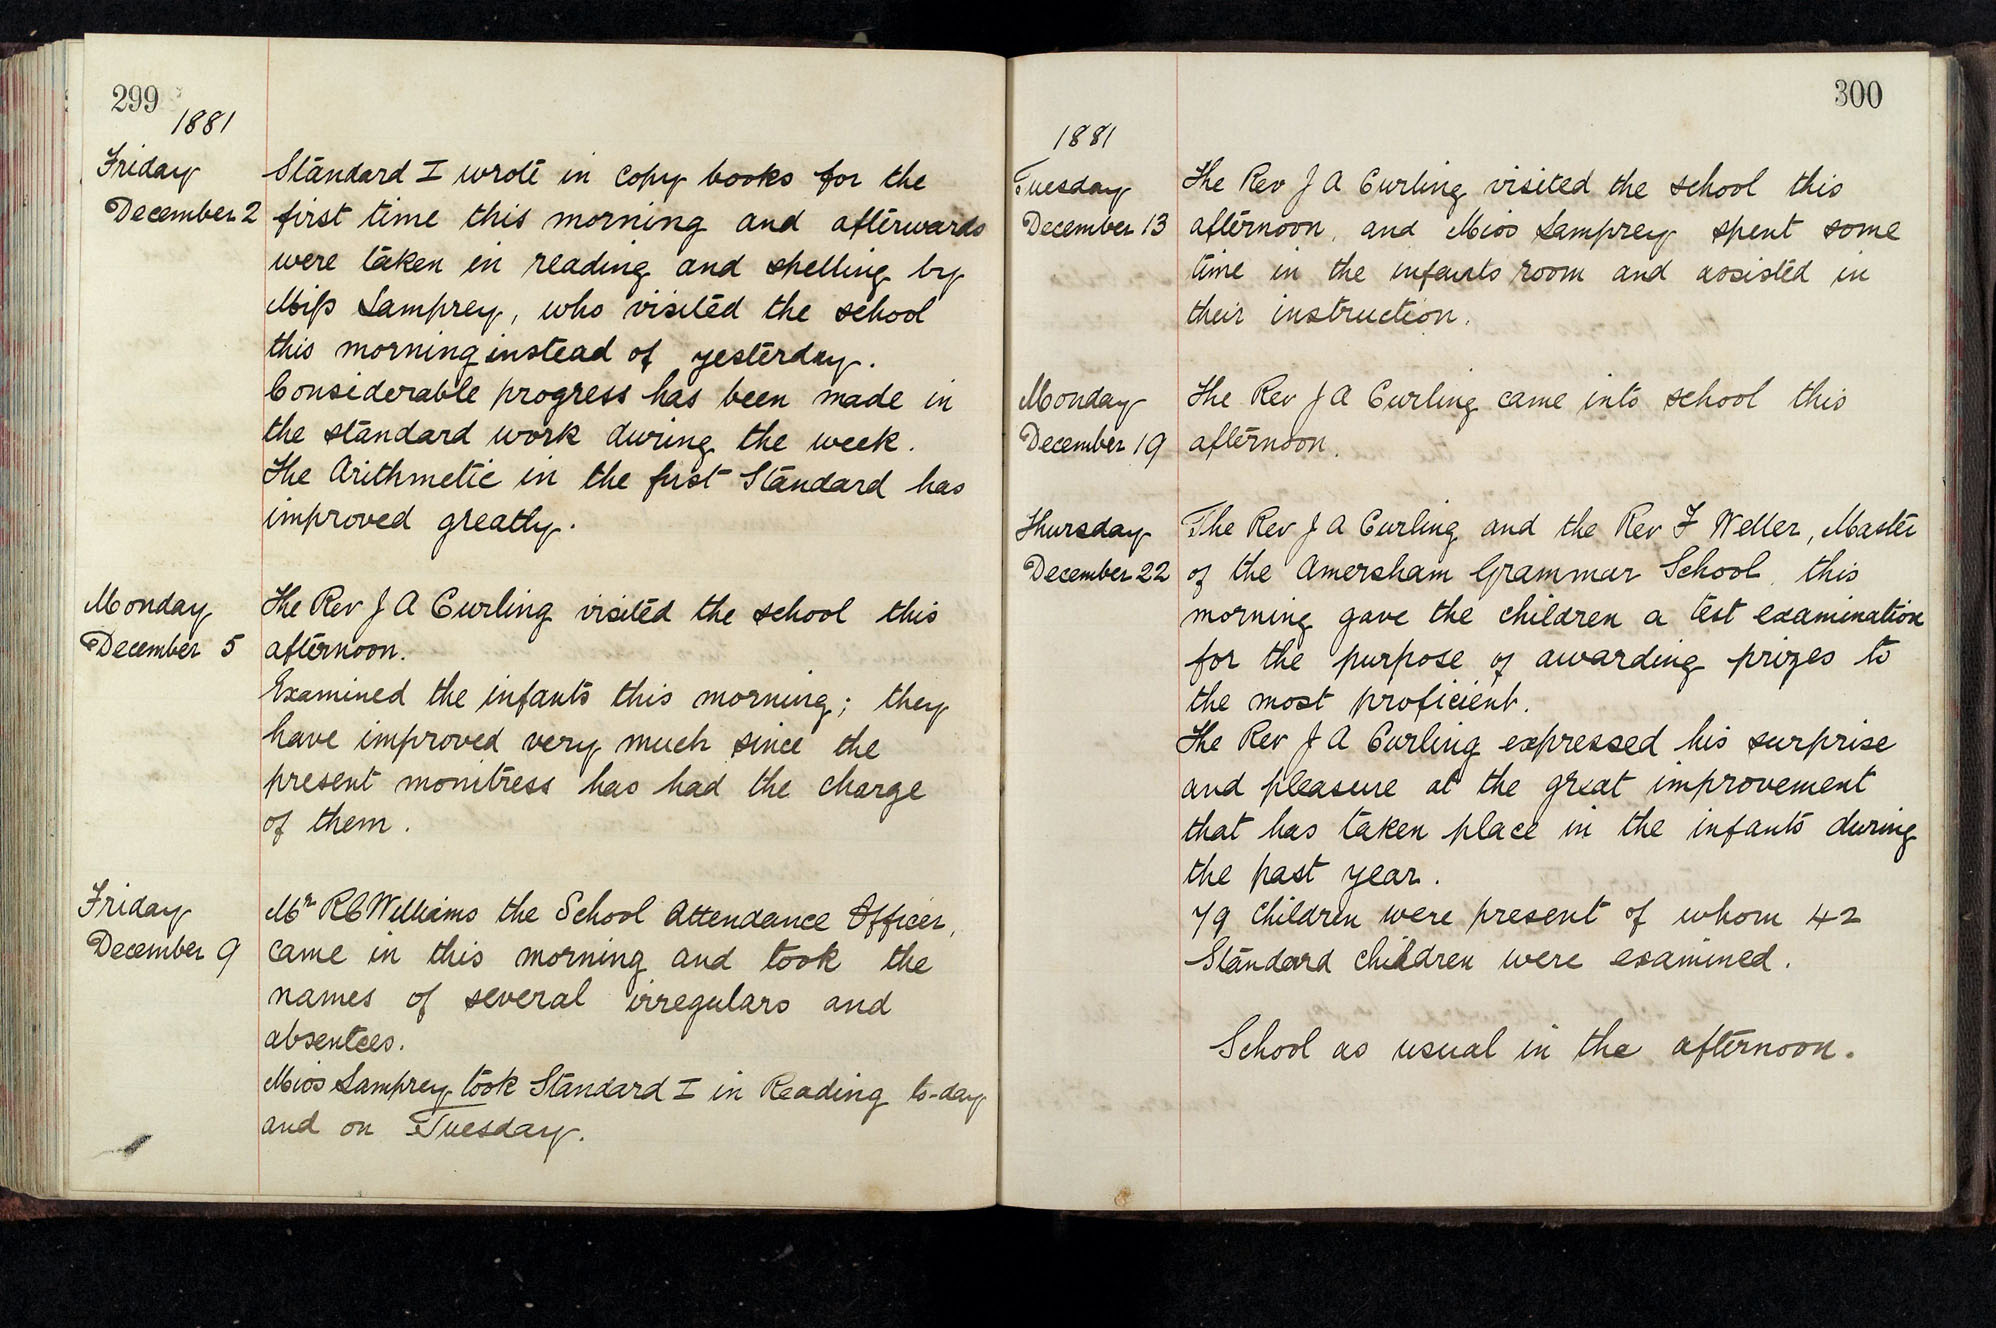 299
1881
Friday
December 2
Standard I wrote in copy books for the
first time this morning and afterwards
were taken in reading and spelling by
Miſs Lamprey, who visited the school
this morning instead of yesterday.
Considerable progress has been made in
the standard work during the week.
The Arithmetic in the first Standard has
improved greatly.
Monday
December 5
The Rev J A Curling visited the school this
afternoon.
Examined the infants this morning; they
have improved very much since the
present monitress has had the charge
of them.
Friday
December 9
Mr R C Williams the School Attendance Officer,
came in this morning and took the
names of several irregulars and
absentees.
Miss Lamprey took Standard I in Reading to-day
and on Tuesday.
300
1881
Tuesday
December 13
The Rev J A Curling visited the school this
afternoon, and Miss Lamprey spent some
time in the infants room and assisted in
their instruction.
Monday
December 19
The Rev J A Curling came into school this
afternoon.
Thursday
December 22
The Rev J A Curling and the Rev F Weller, Master
of the Amersham Grammar School, this
morning gave the children a test examination
for the purpose of awarding prizes to
the most proficient.
The Rev J A Curling expressed his surprise
and pleasure at the great improvement
that has taken place in the infants during
the past year.
79 children were present of whom 42
Standard children were examined.
School as usual in the afternoon.